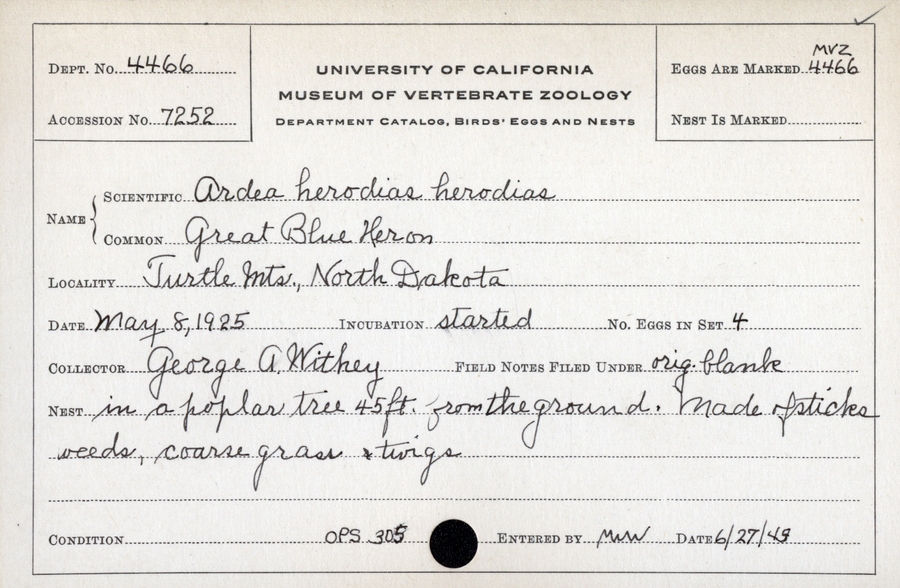 MVZ
DEPT. No. 4466 UNIVERSITY OF CALIFORNIA EGGS ARE MARKED 4466
MUSEUM OF VERTEBRATE ZOOLOGY
ACCESSION No. 7252 DEPARTMENT CATALOG, BIRDS' EGGS AND NESTS NEST IS MARKED
NAME { SCIENTIFIC Ardea herodias herodias
COMMON Great Blue Heron
LOCALITY Turtle Mts., North Dakota
DATE May 8, 1925 INCUBATION started No. EGGS IN SET 4
COLLECTOR George A. Withey FIELD NOTES FILED UNDER orig. blank
NEST in a poplar tree 45 ft. from the ground. Made of sticks
weeds, coarse grass & twigs
CONDITION OPS 305 ENTERED BY DATE 6/27/49